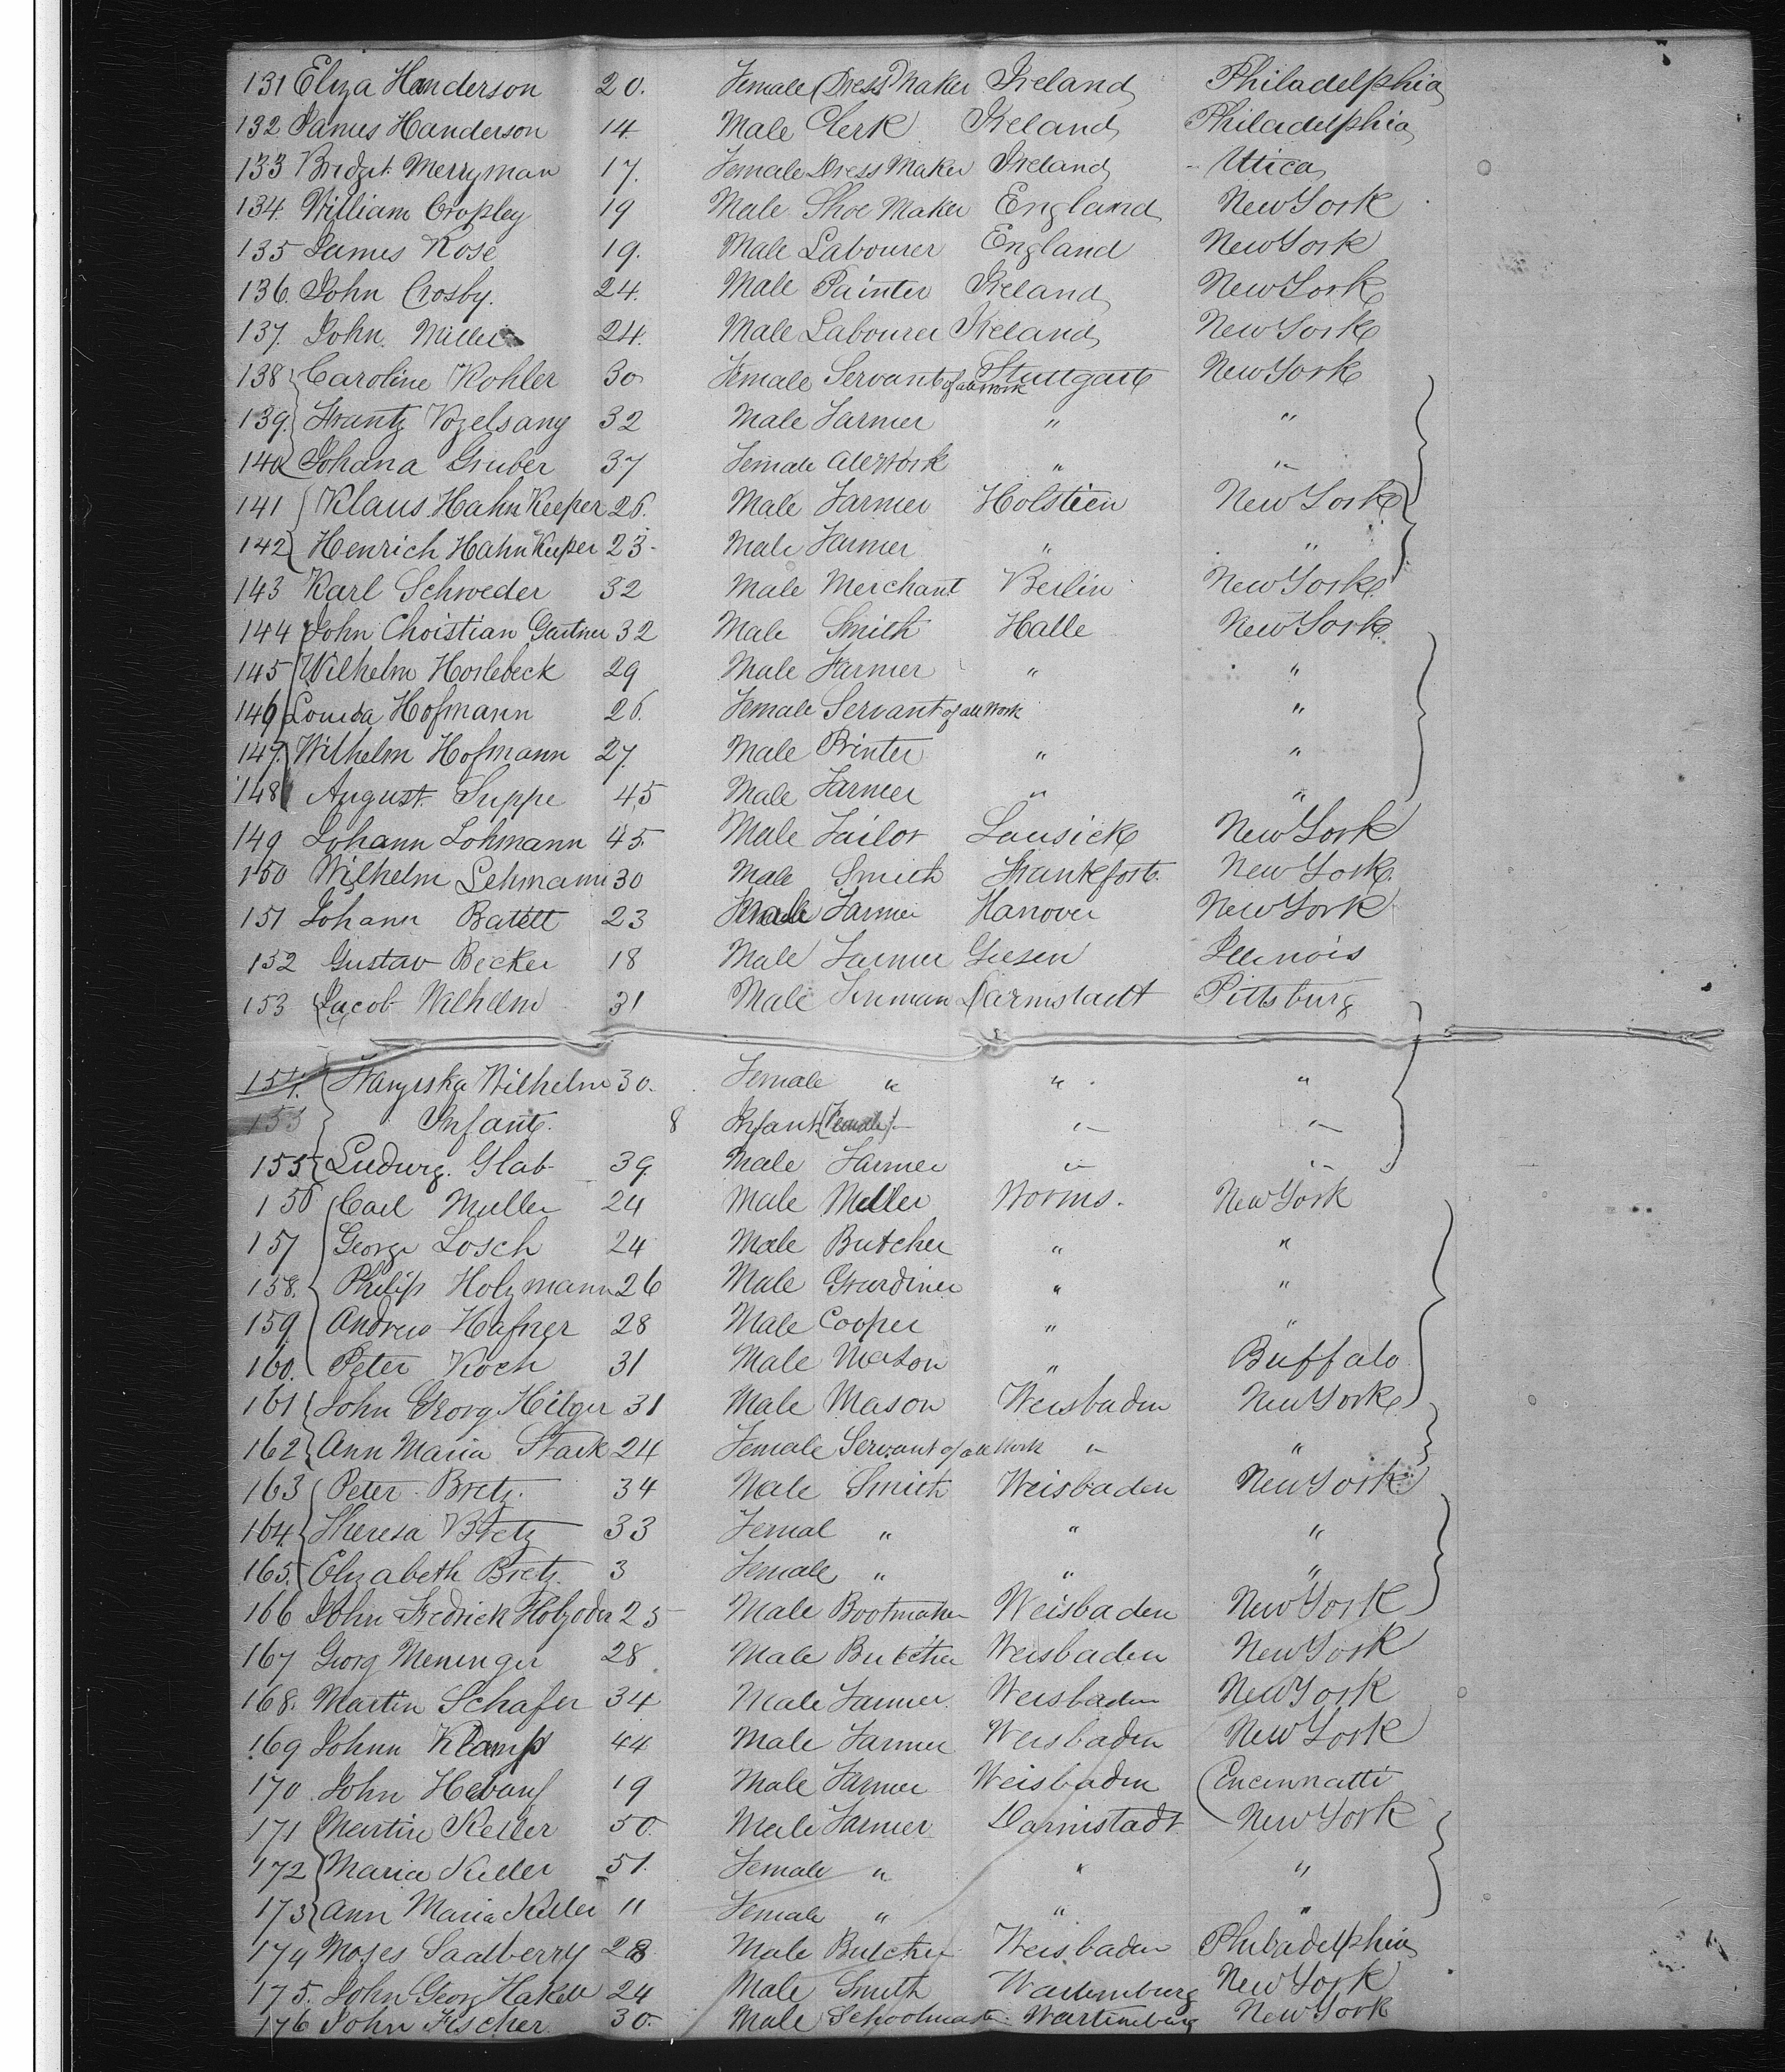 131 Eliza Handerson 20. Female Dress Maker Ireland Philadelphia
132 James Handerson 14 Male Clerk Ireland Philadelphia
133 Bridget Merryman 17. Female Dress Maker Ireland Utica
134 William Cropley 19 Male Shoe Maker England New York
135 James Rose 19. Male Labourer England New York
136. John Crosby. 24. Male Painter Ireland New York
137. John Miller 24. Male Labourer Ireland New York
138 Caroline Kohler 30 Female Servant of all Work Stuttgart New York
139. Frantz Vogelsang 32 Male Farmer " "
140 Johana Gruber 37 Female All Work " "
141 Klaus Hahn Keeper 26. Male Farmer Holstien New York
142 Henrich Hahn Keeper 23 Male Farmer " "
143 Karl Schweder 32 Male Merchant Berlin New York
144 John Christian Gartner 32 Male Smith Halle New York
145 Wilhelm Horlebeck 29 Male Farmer " "
146 Hofmann 26. Female Servant of all Work "
147. Wilhelm Hofmann 27. Male Printer " "
148 August Suppe 45 Male Farmer " "
149 Johann Lohmann 45. Male Tailor Lausick New York
150 Wilhelm Lehmann 30 Male Smith Frankfort. New York.
151 Johann 23 Male Farmer Hanover New York
152 Gustav Becker 18 Male Farmer Giesen Illinois
153 Jacob Wilhelm 31 Male Darmstadt Pittsburg
154. Wilhelm 30. Female " " "
155 Infant. 8 Infant (Female) " "
155 Ludwig Glab 39. Male Farmer " "
156 Carl Muller 24 Male Miller Worms. New York
157 George Losch 24 Male Butcher " "
158. Philip Holzmann 26 Male Gardiner " "
159 Andrew Hafner 28 Male Cooper " "
160. Peter Koch 31 Male Mason " Buffalo
161 John Georg Hilger 31 Male Mason Weisbaden New York
162 Ann Maria Stark 24 Female Servant of all Work " "
163 Peter Bretz. 34 Male Smith Weisbaden New York
164. Theresa Bretz 33 Femal " " "
165. Elizabeth Bretz. 3 Female " " "
166 John Fredrick Holzoder 25 Male Bootmaker Weisbaden New York
167 Georg Meninger 28 Male Butcher Weisbaden New York
168. Martin Schafer 34 Male Farmer Weisbaden New York
169 Johnn Klamp 44 Male Farmer Weisbaden New York
170 John 19 Male Farmer Weisbaden Cincinnatti
171 Martin Keller 50. Male Farmer Darmstadt New York
172 Maria Keller 51. Female " " "
173 Ann Maria Keller 11 Female " " "
174 Moses Saalberry 28 Male Butcher Weisbaden Philadelphia
175. John Georg Hakell 24 Male Smith Wartemburg New York
176 John Fischer 30. Male Schoolmaster Wartemburg New York